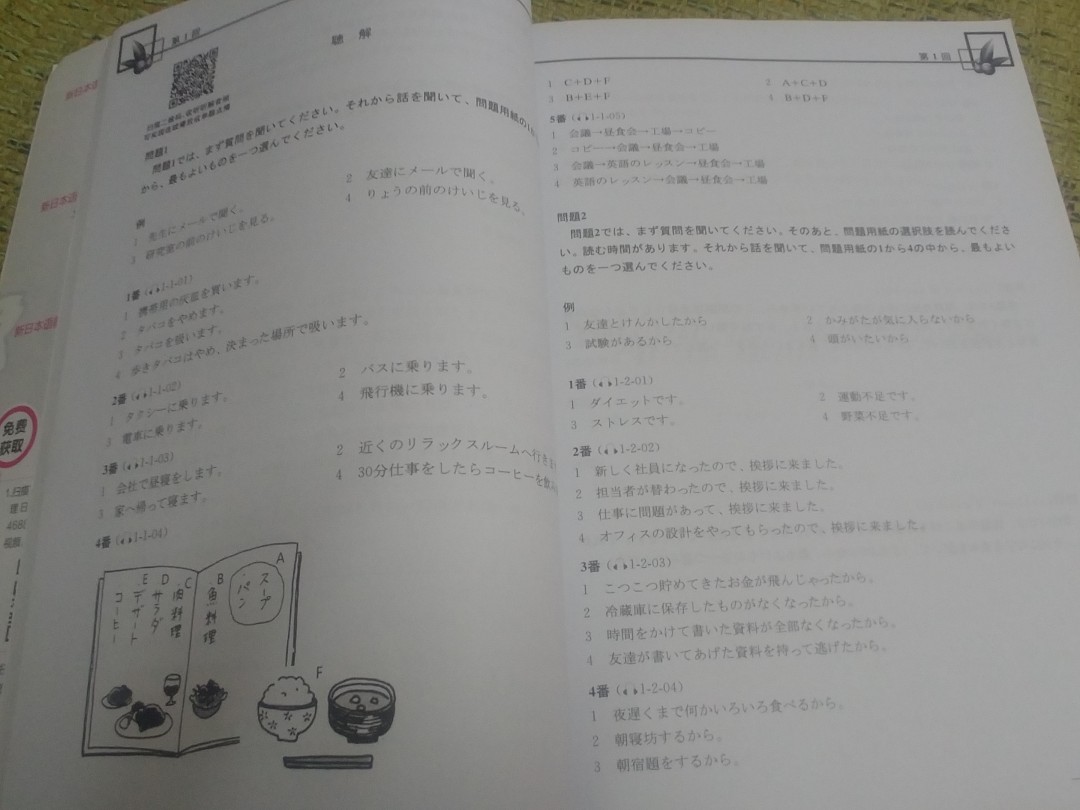 新日本語
新日本語
新日本語
免费
获取
第1回
聴 解
問題1
問題1では、まず質問を聞いてください。それから話を聞いて、問題用紙の1か
から、最もよいものを一つ選んでください。
例
1 先生にメールで聞く。
2 友達にメールで聞く。
3 研究室の前のけいじを見る。
4 りょうの前のけいじを見る。
1番(1-1-01)
1 携帯用の灰皿を買います。
2 タバコをやめます。
3 タバコを吸います。
4 歩きタバコはやめ、決まった場所で吸います。
2番(1-1-02)
1 タクシーに乗ります。
2 バスに乗ります。
3 電車に乗ります。
4 飛行機に乗ります。
3番(1-1-03)
1 会社で昼寝をします。
2 近くのリラックスルームへ行きま
3 家へ帰って寝ます。
4 30分仕事をしたらコーヒーを飲み
4番(1-1-04)
A
スープ
パン
B
魚料理
C
肉料理
D
サラダ
E
デザート
コーヒー
F
第1回
1 C+D+F
2 A+C+D
3 B+E+F
4 B+D+F
5番(1-1-05)
1 会議→昼食会→工場→コピー
2 コピー→会議→昼食会→工場
3 会議→英語のレッスン→昼食会→工場
4 英語のレッスン→会議→昼食会→工場
問題2
問題2では、まず質問を聞いてください。そのあと、問題用紙の選択肢を読んでくださ
い。読む時間があります。それから話を聞いて、問題用紙の1から4の中から、最もよい
ものを一つ選んでください。
例
1 友達とけんかしたから
2 かみがたが気に入らないから
3 試験があるから
4 頭がいたいから
1番(1-2-01)
1 ダイエットです。
2 運動不足です。
3 ストレスです。
4 野菜不足です。
2番(1-2-02)
1 新しく社員になったので、挨拶に来ました。
2 担当者が替わったので、挨拶に来ました。
3 仕事に問題があって、挨拶に来ました。
4 オフィスの設計をやってもらったので、挨拶に来ました。
3番(1-2-03)
1 こつこつ貯めてきたお金が飛んじゃったから。
2 冷蔵庫に保存したものがなくなったから。
3 時間をかけて書いた資料が全部なくなったから。
4 友達が書いてあげた資料を持って逃げたから。
4番(1-2-04)
1 夜遅くまで何かいろいろ食べるから。
2 朝寝坊するから。
3 朝宿題をするから。